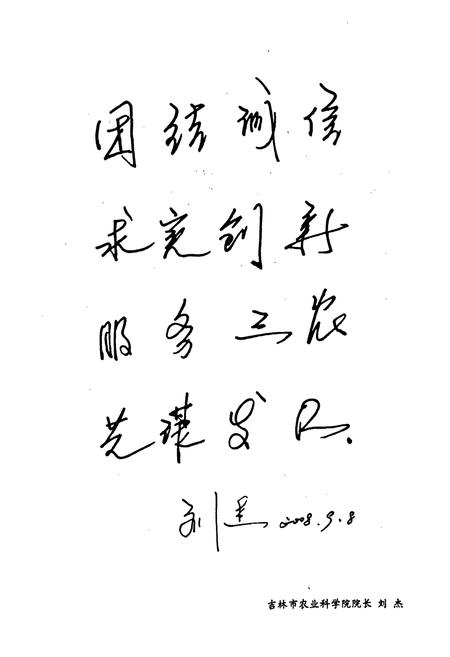 团结诚信
求实创新
服务三农
共谋发展.
刘杰 2008.9.8
吉林市农业科学院院长 刘 杰